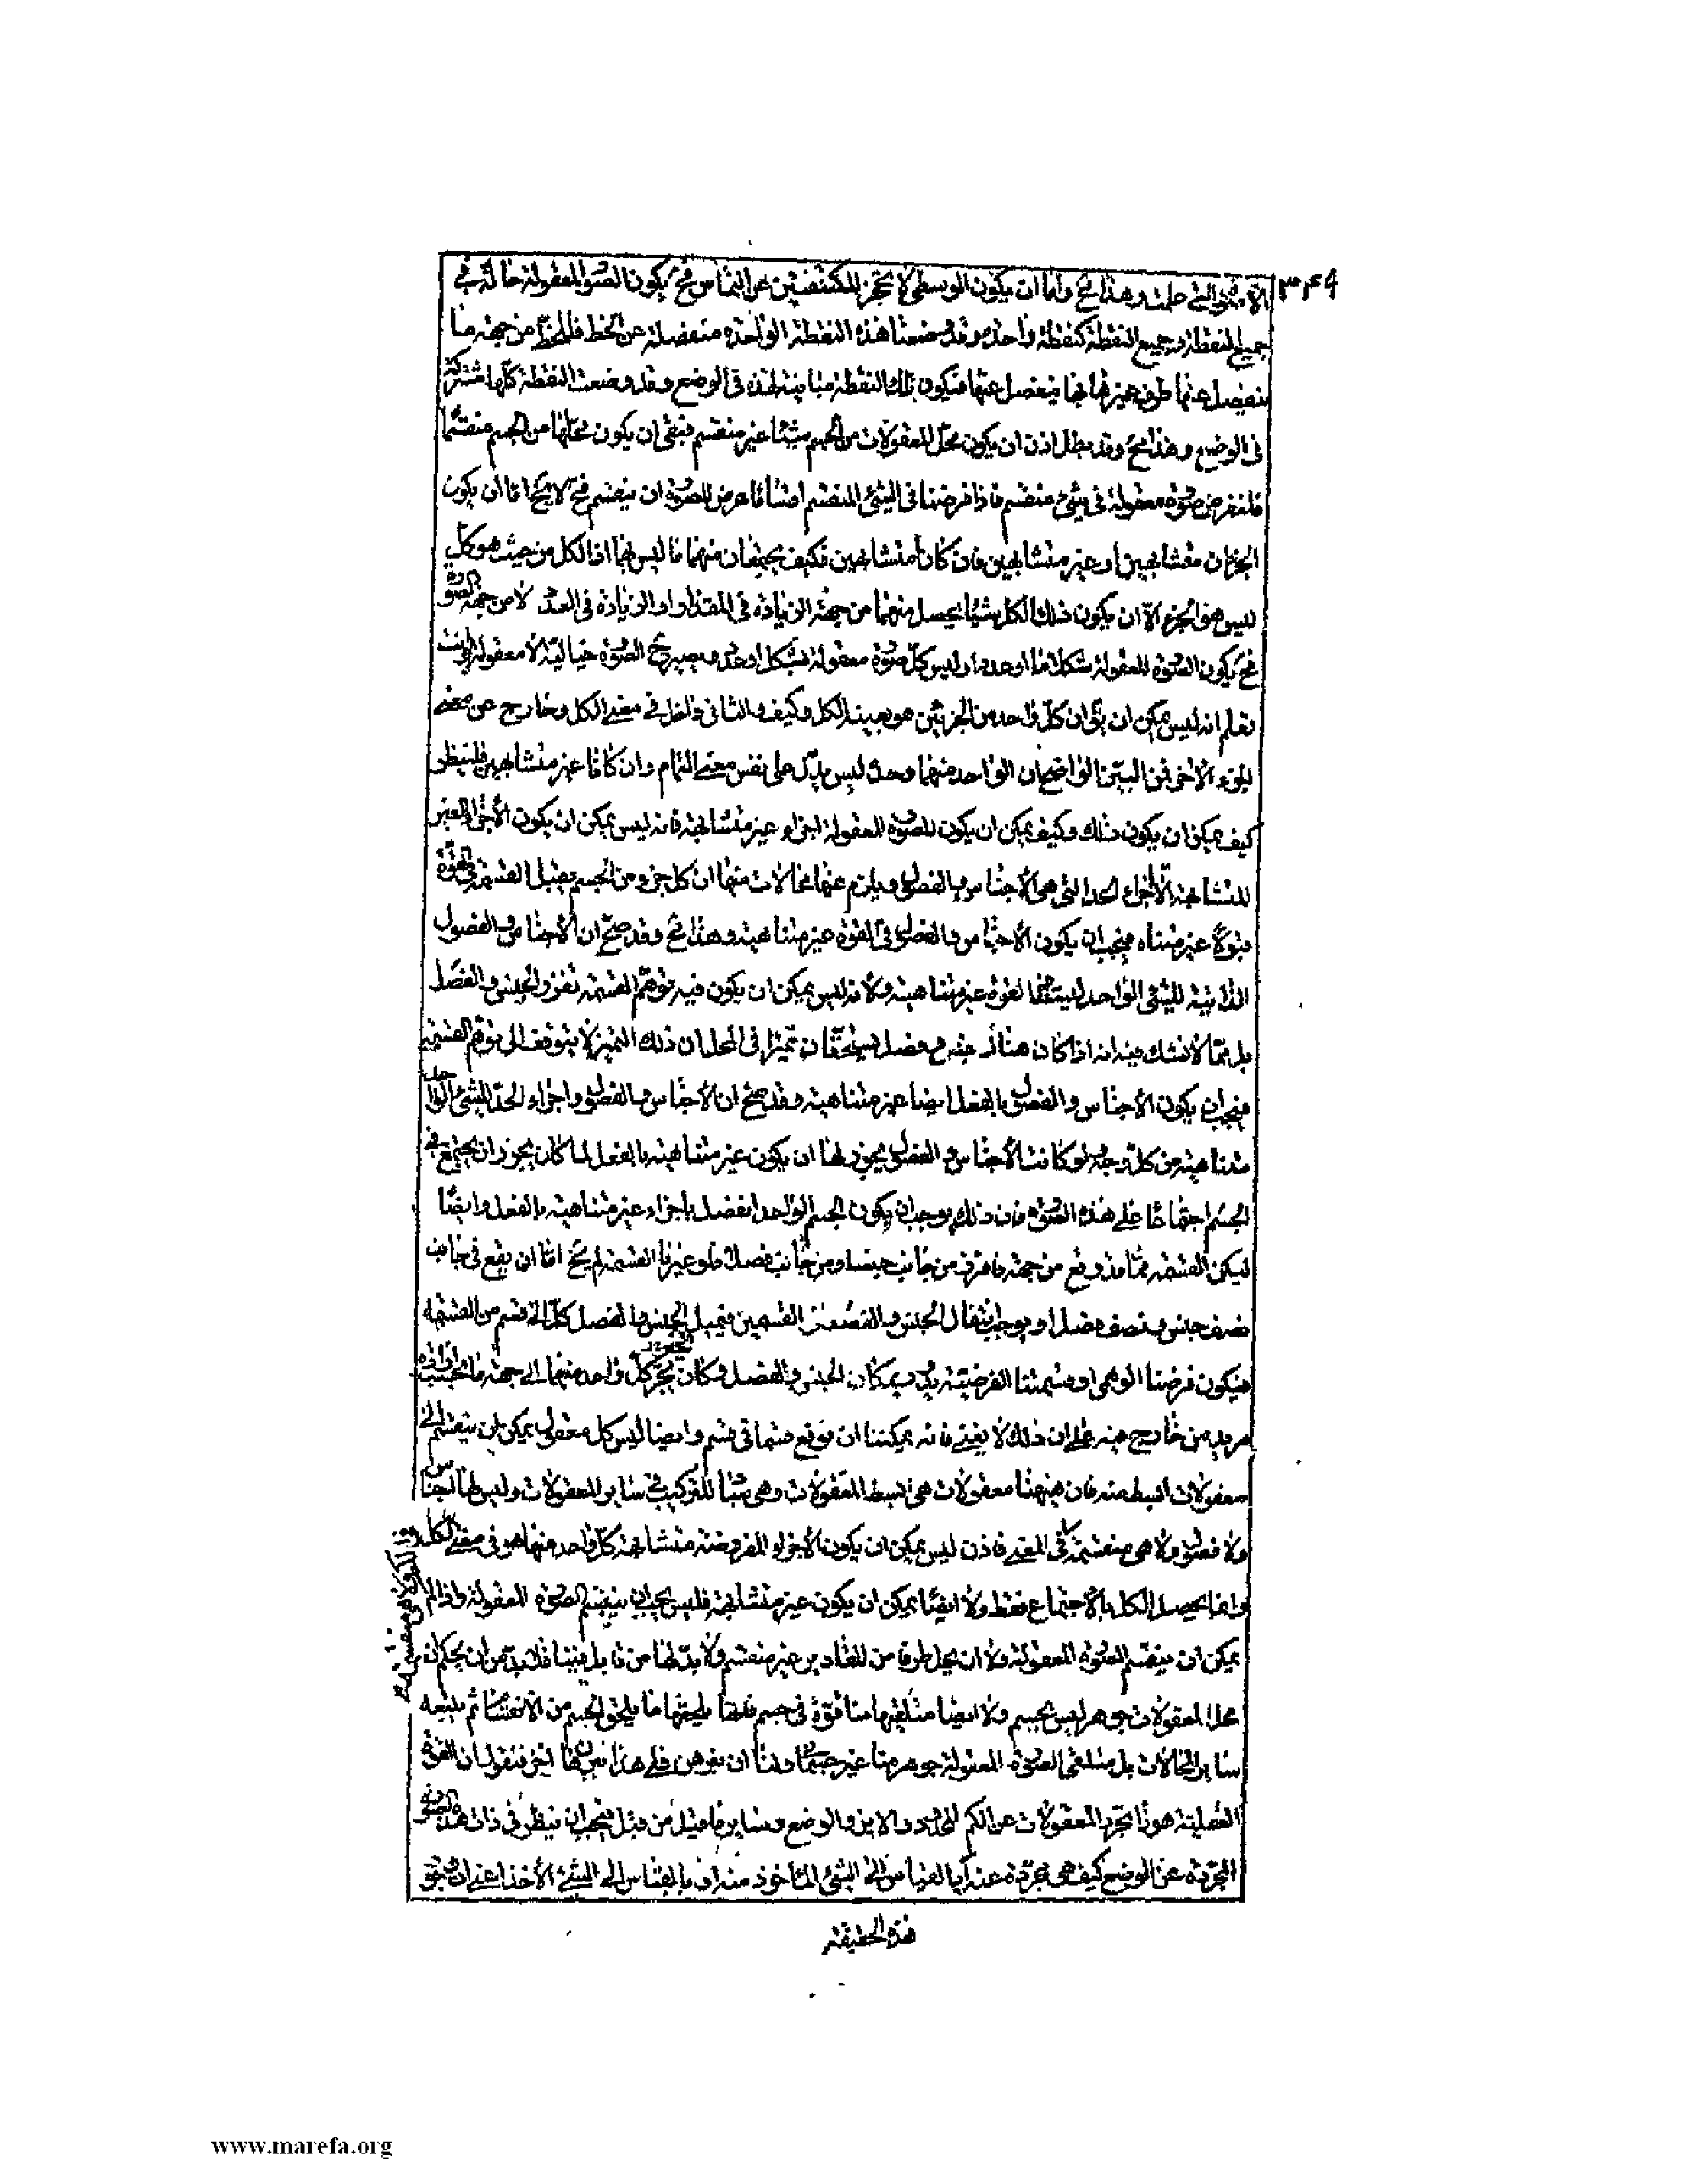 الأمور التي حلت وهذا مح واما ان يكون الوسطى لا تحجز المكتنفتين عن التماس فح يكون الصور المعقولة حالة في
٣٤٩
جميع النقطة وجميع النقطة كنقطة واحدة وقد وضعنا هذه النقطة الواحدة منفصلة عن الخط فللخط من جهة ما
ينفصل عنها طرف غيرها بها ينفصل عنها فيكون تلك النقطة مباينة لهذه في الوضع وقد وضعت النقطة كلها مشتركة
في الوضع وهذا مح وقد بطل اذن ان يكون محل المعقولات من الجسم شيئا غير منقسم فبقى ان يكون محلها من الجسم منقسما
فلنفرض صورة معقولة في شئ منقسم فاذا فرضنا في الشئ المنقسم اقساما عرض للصورة ان ينقسم فح لا يخ اما ان يكون
الجزءان متشابهين او غير متشابهين فان كانا متشابهين فكيف يجتمعان منهما ما ليس بهما اذ الكل من حيث هو كل
ليس هو الجزء الا ان يكون ذلك الكل شيئا يحصل منهما من جهة الزيادة في المقدار او الزيادة في العدد لا من جهة الصورة
فح يكون الصورة المعقولة شكلا ما او عددا ما وليس كل صورة معقولة بشكل او عدد ويصير ح الصورة خيالية لا معقولة وانت
تعلم انه ليس يمكن ان يق ان كل واحد من الجزئين هو بعينه الكل وكيف والثاني داخل في معنى الكل وخارج عن معنى
الجزء الاخر فمن البين الواضح ان الواحد منهما وحده ليس يدل على نفس معنى التمام وان كانا غير متشابهين فلينظر
كيف يمكن ان يكون ذلك وكيف يمكن ان يكون للصورة المعقولة اجزاء غير متشابهة فانه ليس يمكن ان يكون الأجزاء الغير
المتشابهة الا اجزاء الحد التي هي الأجناس والفصول ويلزم عنها محالات منها ان كل جزء من الجسم يقبل القسمة في القوة
قبولا غير متناه فيجب ان يكون الأجناس والفصول في القوة غير متناهية وهذا مح وقد صح ان الأجناس والفصول
الذاتية للشئ الواحد ليست في القوة غير متناهية ولأنه ليس يمكن ان يكون فيه توهم القسمة تفرز الجنس والفصل
بل مما لا نشك فيه انه اذا كان هناك جنس وفصل يستحقان تميزا في المحل ان ذلك التميز لا يتوقف الى توهم القسمة
فيجب ان يكون الأجناس والفصول بالفعل ايضا غير متناهية وقد صح ان الأجناس والفصول واجزاء الحد للشئ الواحد
متناهية من كل وجه ولو كانت الأجناس والفصول يجوز لها ان يكون غير متناهية بالفعل لما كان يجوز ان يجتمع في
الجسم اجتماعا على هذه الصورة فان ذلك يوجب ان يكون الجسم الواحد انفصل بأجزاء غير متناهية بالفعل وايضا
ليكن القسمة مما قد وقع من جهة فافرز من جانب جنسا ومن جانب فصلا فلو غيرنا القسمة لم يخ اما ان يقع في جانب
نصف جنس ونصف فصل او يوجب انتقال الجنس والفصل الى القسمين فيميل الجنس والفصل كل الى قسم من القسمة
فيكون فرضنا الوهمي او قسمتنا الفرضية يدور بمكان الجنس والفصل وكان يجر كل واحد منهما الى جهة ما بحسب ارادة
مريد من خارج فيه على ان ذلك لا يغني فانه يمكننا ان نوقع قسما في قسم وايضا ليس كل معقول يمكن ان ينقسم الى
معقولات ابسط منه فان هيهنا معقولات هي ابسط المعقولات وهي مبادئ للتركيب في ساير المعقولات وليس لها اجناس
ولا فصول ولا هي منقسمة في الكم ولا هي منقسمة في المعنى فاذن ليس يمكن ان يكون الأجزاء المفروضة متشابهة كل واحد منها هو في معنى الكل
وانما يحصل الكل بالاجتماع فقط ولا ايضا يمكن ان يكون غير متشابهة فليس يجب ان ينقسم الصورة المعقولة واذا لم
يمكن ان ينقسم الصورة المعقولة ولا ان يحل طرفا من المقادير غير منقسم ولا بد لها من قابل فينا فلا بد من ان يحكم ان
محل المعقولات جوهر ليس بجسم ولا ايضا متلقيها منا قوة في جسم فانه يلحقها ما يلحق الجسم من الانقسام ثم يتبعه
ساير المحالات بل متلقى الصورة المعقولة جوهر منا غير جسماني ولنا ان نبرهن على هذا ببرهان اخر فنقول ان القوة
العقلية هو ذا تجرد المعقولات عن الكم المحدود والاين والوضع وساير ما قيل من قبل فيجب ان ينظر في ذات هذه الصورة
المجردة عن الوضع كيف هي مجردة عنه أبالقياس الى الشئ المأخوذ منه او بالقياس الى الشئ الآخذ اعني ان وجود
هذه الحقيقة
www.marefa.org